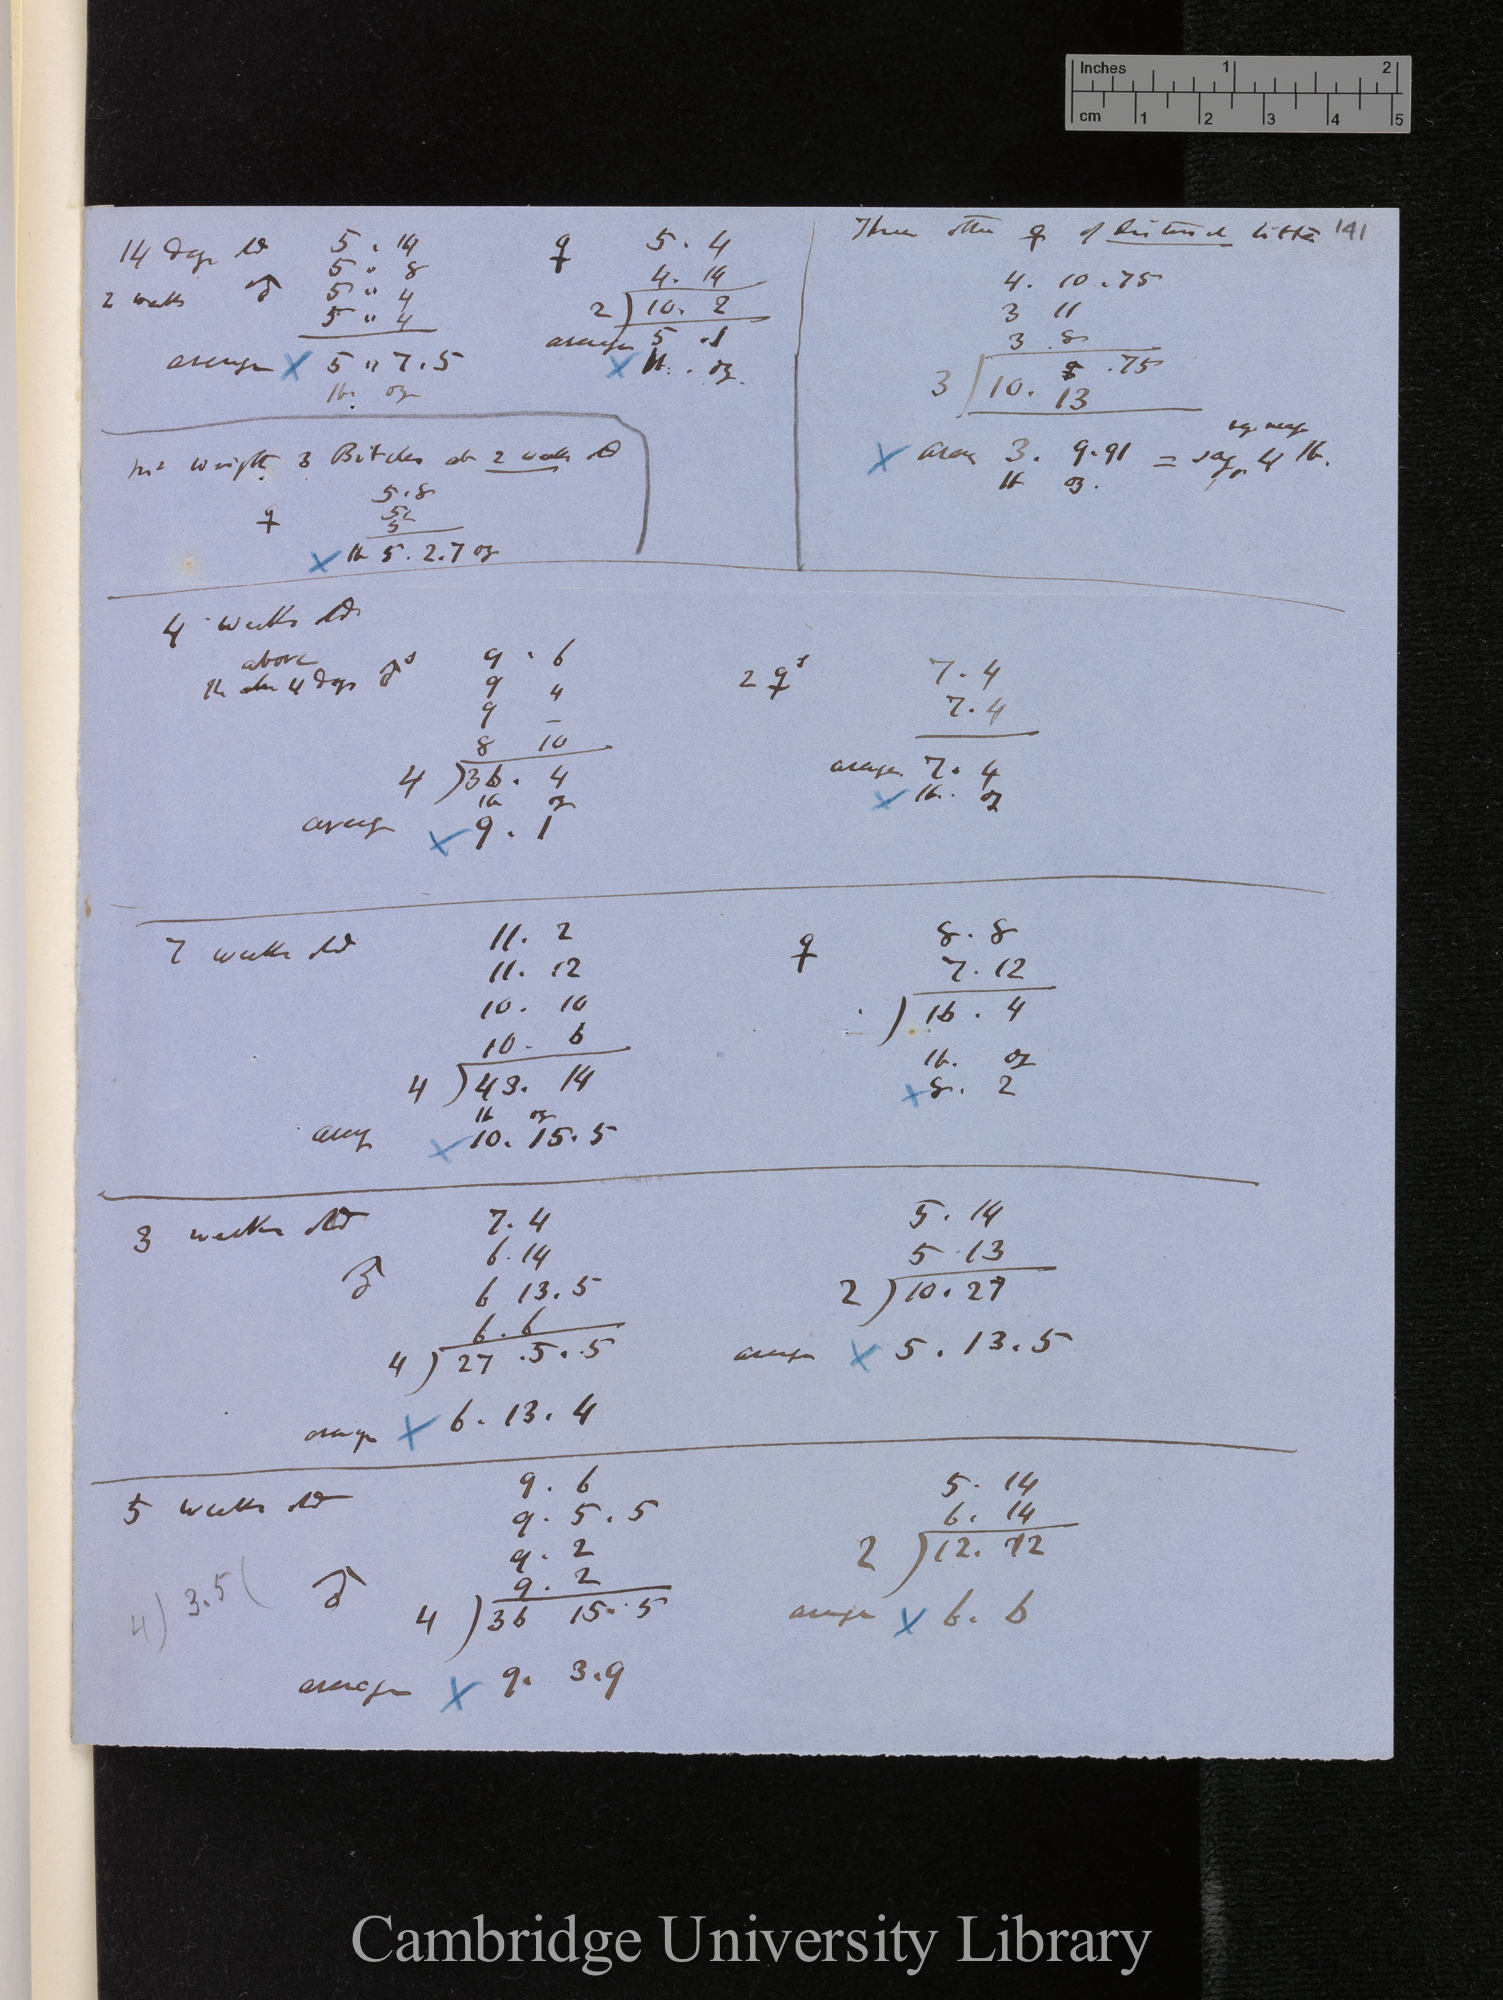 Inches 1 2
cm 1 2 3 4 5
141
14 days old 5 . 14
5 " 8
2 weeks ♂ 5 " 4
5 " 4
average X 5 " 7.5
lb. oz
♀ 5 . 4
4 . 14
2 ) 10 . 2
average 5 . 1
X lb . oz.
Three other ♀ of distinct litter
4 . 10 . 75
3 11
3 . 8
3 10 . .75
13
X aver 3 . 9.91 = say 4 lb.
lb oz.
weight 3 Bitches at 2 weeks old
5.8
♀
5
X lb 5 . 2.7 oz
4 weeks old
above
4 days ♂s 9 . 6
9 4
9 –
8 10
4 ) 36 . 4
lb oz
average X 9 . 1
2 ♀s 7 . 4
7 . 4
average 7 . 4
X lb. oz
7 weeks old 11 . 2
11 . 12
10 . 10
10 . 6
4 ) 43 . 14
lb oz
averg X 10 . 15 . 5
♀ 8 . 8
7 . 12
) 16 . 4
lb. oz
X 8 . 2
3 weeks old 7 . 4
6 . 14
♂ 6 13 . 5
6 . 6
4 ) 27 . 5 . 5
average X 6 . 13 . 4
5 . 14
5 . 13
2 ) 10 . 27
average X 5 . 13 . 5
5 weeks old 9 . 6
9 . 5 . 5
9 . 2
♂ 9 . 2
4 ) 36 15 . 5
4) 3.5 (
average X 9 . 3.9
5 . 14
6 . 14
2 ) 12 . 12
average X 6 . 6
Cambridge University Library